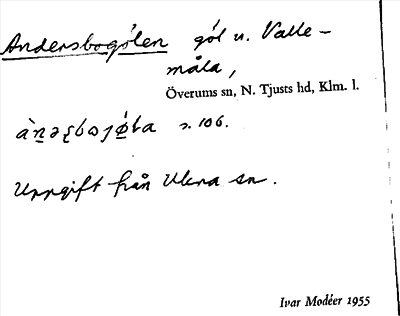 Andersbogölen göl u. Valle-
måla,
Överums sn, N. Tjusts hd, Klm. l.
s. 106.
Uppgift från Ukna sn.
Ivar Modéer 1955